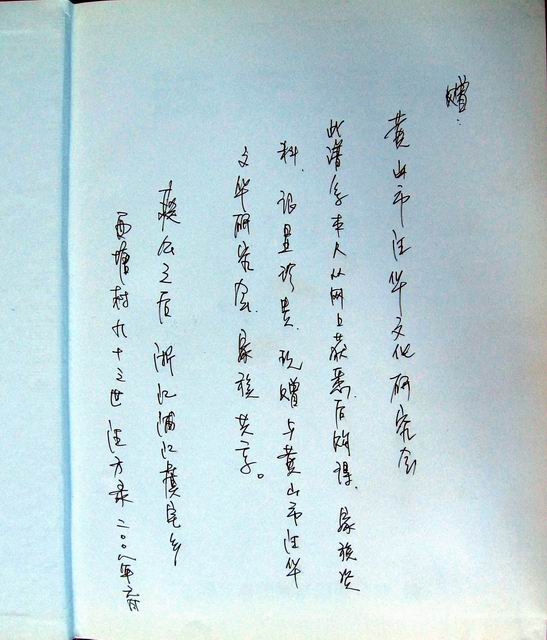 赠:
黄山市汪华文化研究会
此谱系本人从网上获悉后购得,家族资
料,很是珍贵,现赠与黄山市汪华
文华研究会,家族共享。
公之后 浙江浦江黄宅乡
西塘村九十三世 汪方录 二〇〇八年